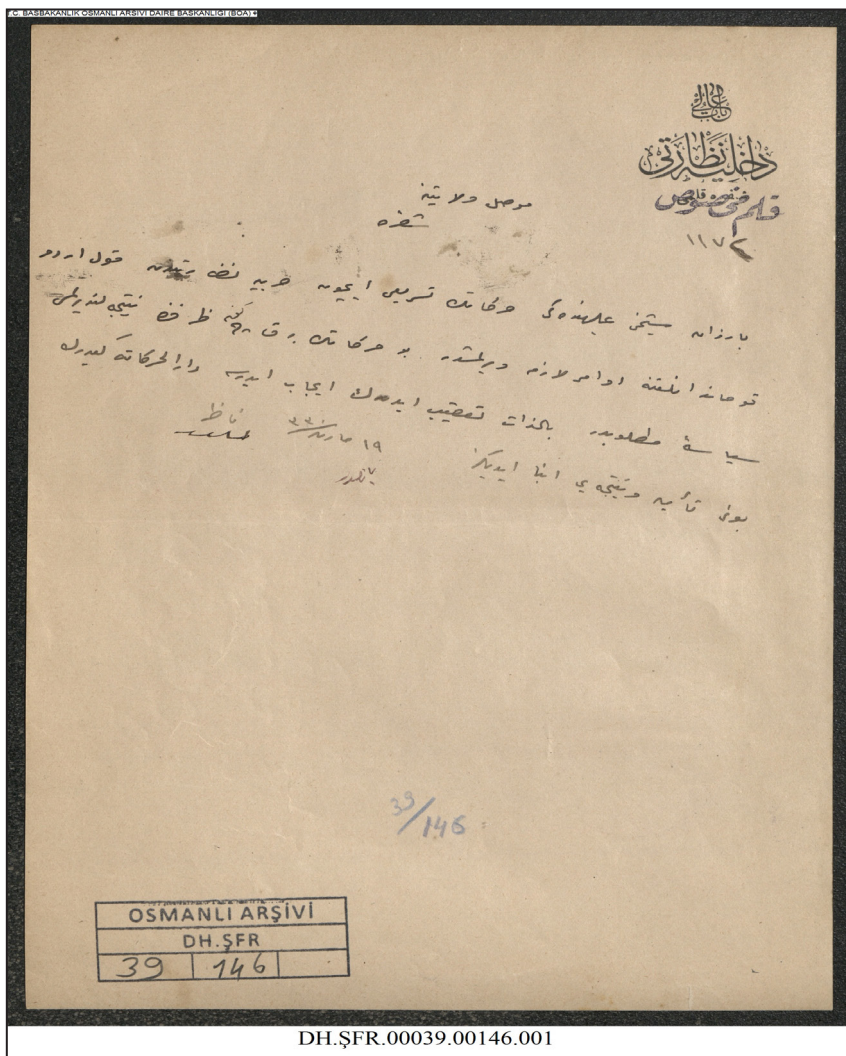 T.C. BAŞBAKANLIK OSMANLI ARŞİVİ DAİRE BAŞKANLIĞI (BOA)
باب عالی
داخلیه نظارتی
قلم مخصوص
١١٧٢
موصل ولایتنه
شفره
بارزان شیخی علیهنده‌کی حرکاتك تسریعی ایچون حربیه نظارتندن قول اردو
قوماندانلغنه اوامر لازمه ویرلمشدر بو حرکاتك برقاچ كون ظرفنده نتیجه‌لندیرلمسی
سیاسةً مطلوبدر بالذات تعقیب ایده‌رك ایجاب ایدرسه دار الحرکاته كیده‌رك
بونی تأمین ونتیجه‌یی انبا ایدیكز
١٩ مارت ٣٣٠
ناظر
39/146
OSMANLI ARŞİVİ
DH.ŞFR
39 146
DH.ŞFR.00039.00146.001